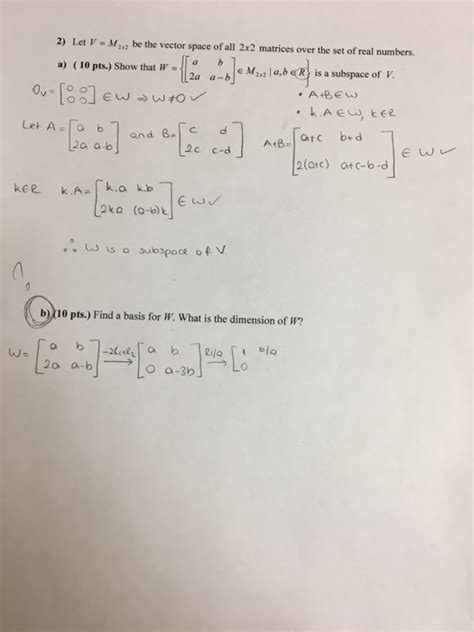 2) Let V = M₂ₓ₂ be the vector space of all 2x2 matrices over the set of real numbers.
a) ( 10 pts.) Show that W = {[a b; 2a a-b] ∈ M₂ₓ₂ | a,b ∈ R} is a subspace of V.
0ᵥ = [0 0; 0 0] ∈ W ⇒ W ≠ 0 ✓
• A+B ∈ W
• k.A ∈ W, k∈R
Let A = [a b; 2a a-b] and B = [c d; 2c c-d]
A+B = [a+c b+d; 2(a+c) a+c-b-d] ∈ W ✓
k∈R k.A = [k.a k.b; 2ka (a-b)k] ∈ W ✓
∴ W is a subspace of V.
b) (10 pts.) Find a basis for W. What is the dimension of W?
W = [a b; 2a a-b] -2R₁+R₂ → [a b; 0 a-3b] R1/a → [1 b/a; 0